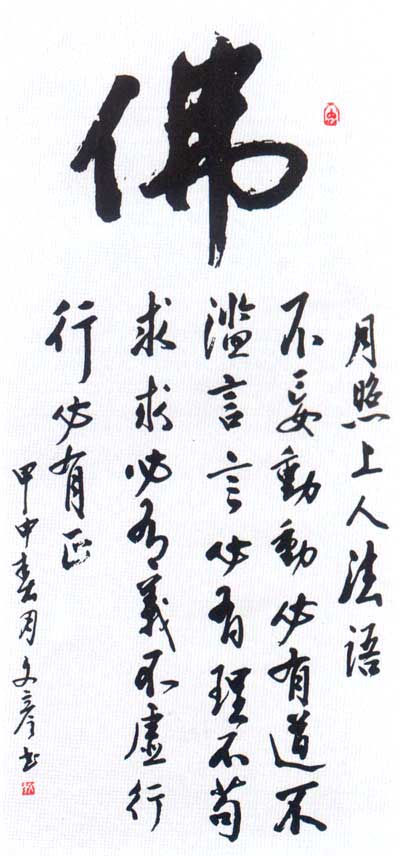 佛
月照上人法语
不妄動動必有道不
滥言言必有理不苟
求求必有義不虛行
行必有正
甲申春月文彦书